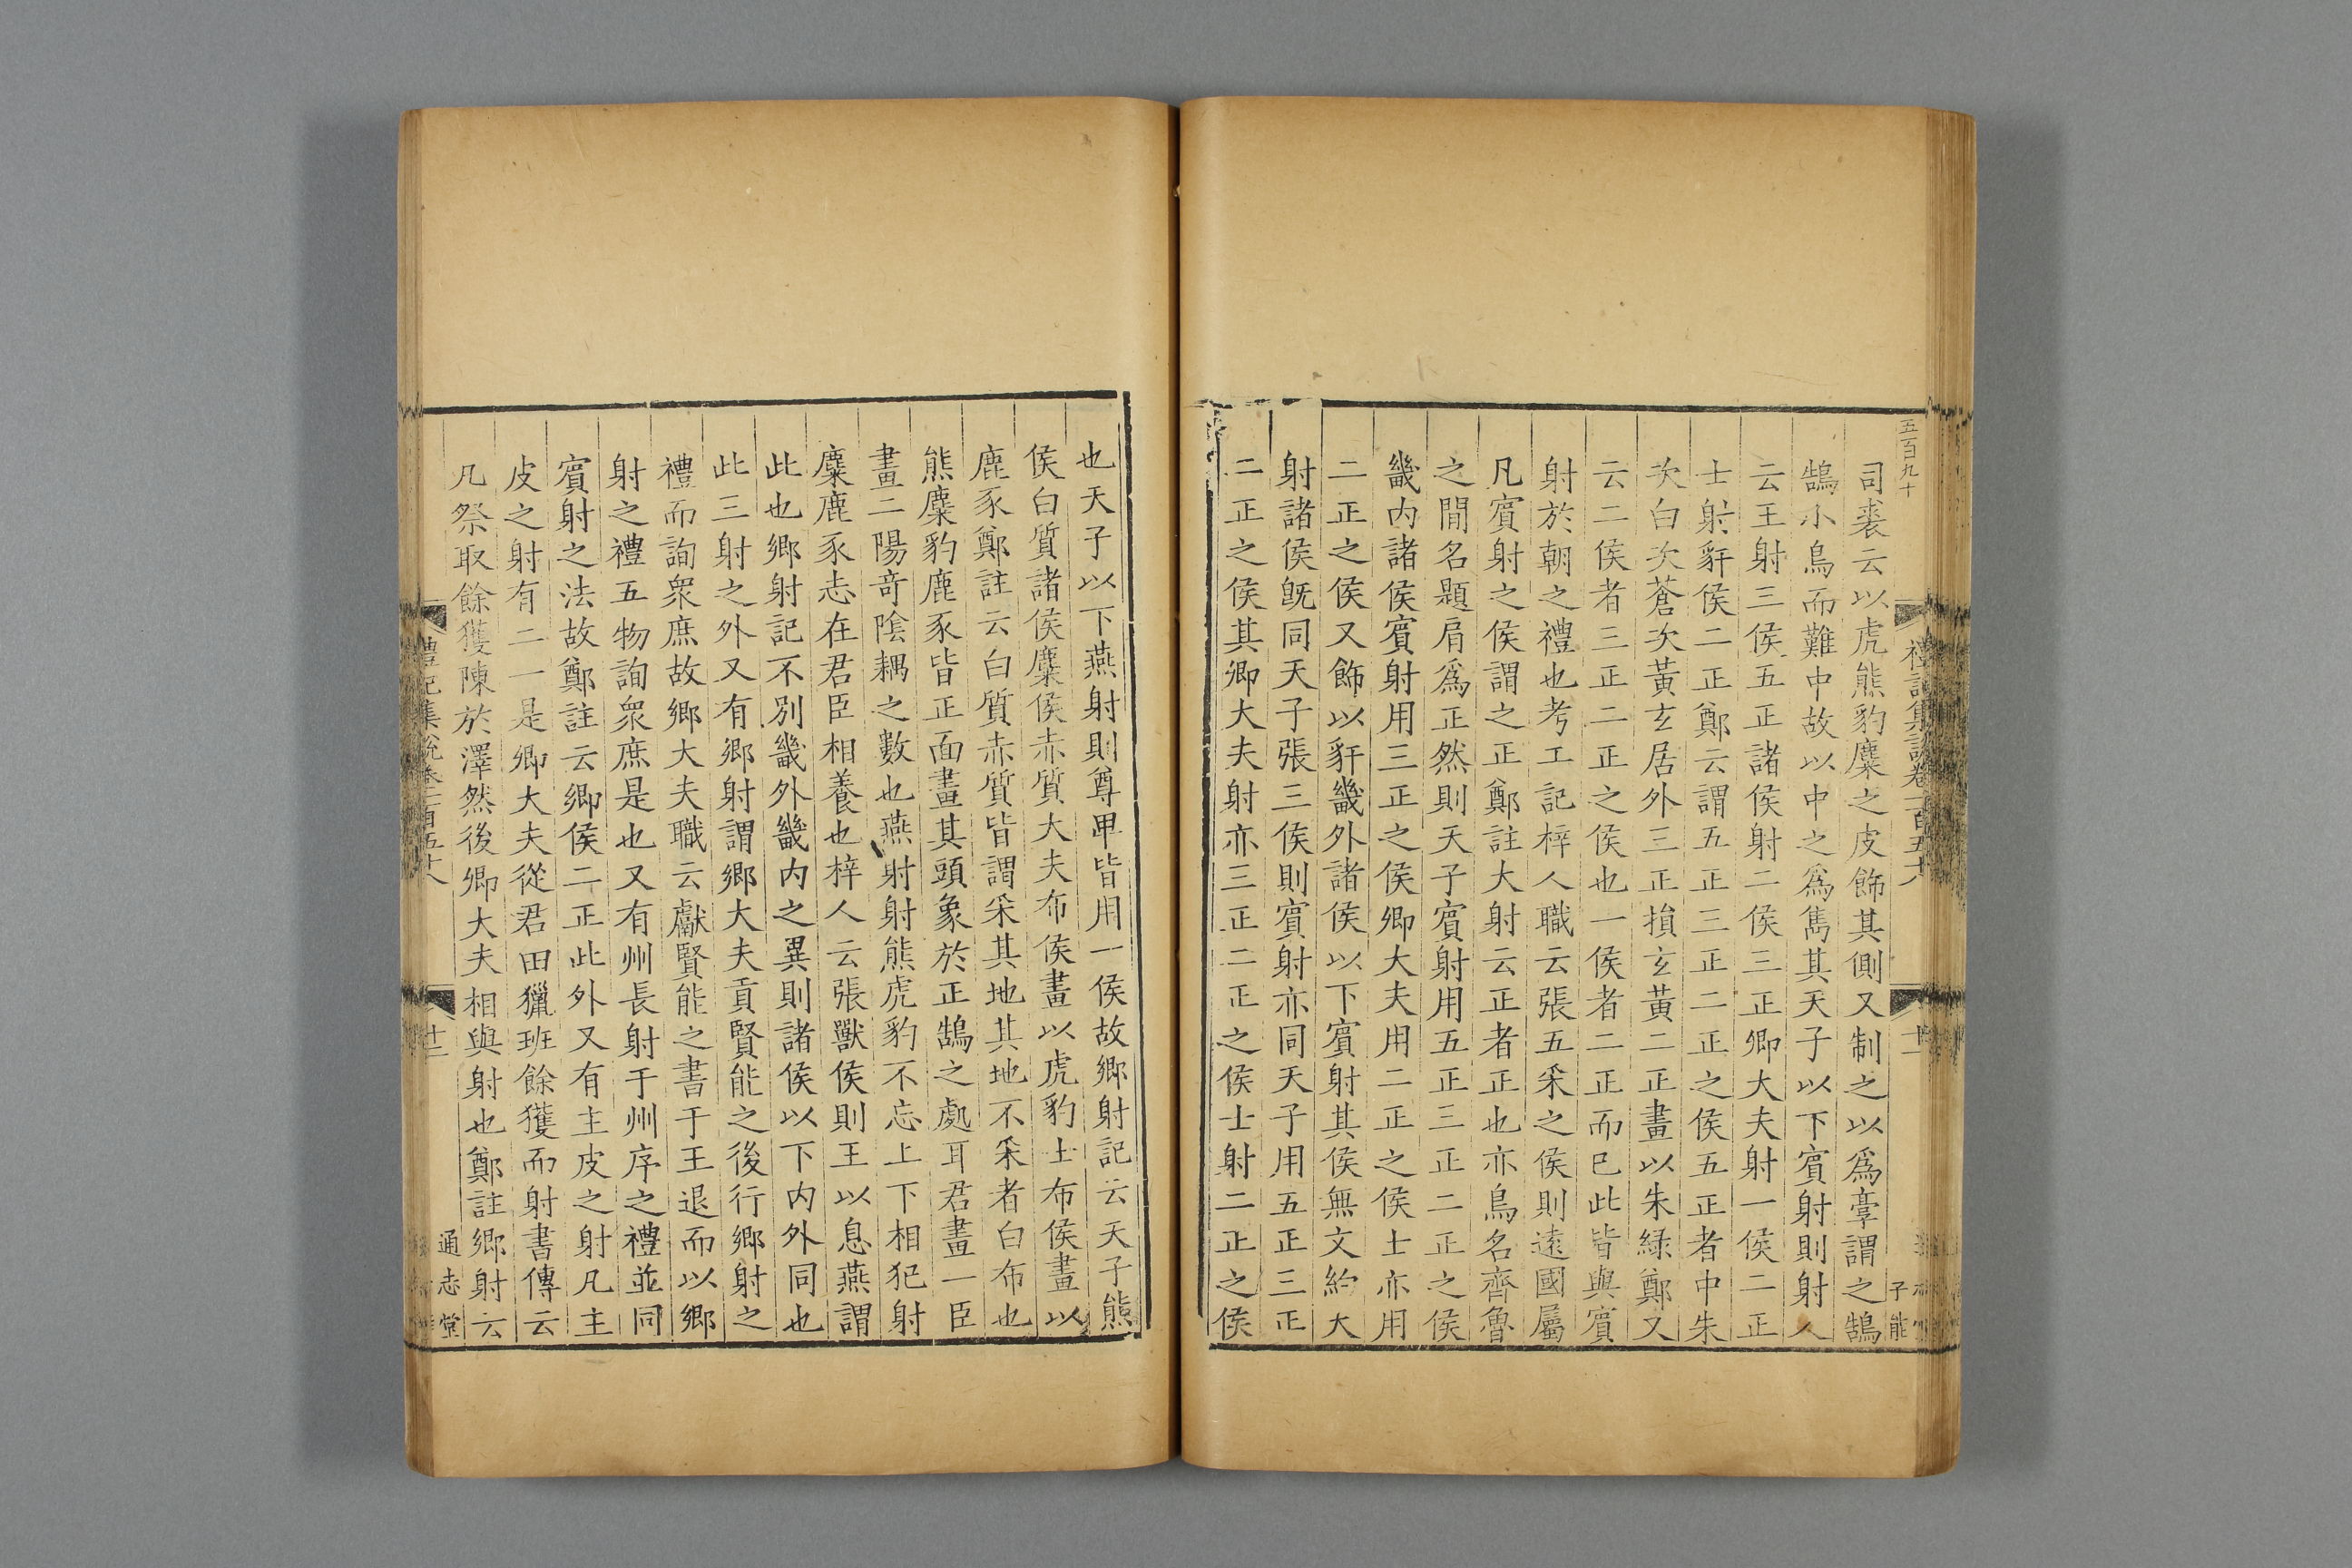 五百九十
禮記集說卷一百五十八
十一
子能
司裘云以虎熊豹麋之皮飾其側又制之以爲𦎫謂之鵠
鵠小鳥而難中故以中之爲雋其天子以下賓射則射人
云王射三侯五正諸侯射二侯三正卿大夫射一侯二正
士射豻侯二正鄭云謂五正三正二正之侯五正者中朱
次白次蒼次黃玄居外三正損玄黃二正畫以朱綠鄭又
云二侯者三正二正之侯也一侯者二正而已此皆與賓
射於朝之禮也考工記梓人職云張五采之侯則遠國屬
凡賓射之侯謂之正鄭註大射云正者正也亦鳥名齊魯
之間名題肩爲正然則天子賓射用五正三正二正之侯
畿內諸侯賓射用三正之侯卿大夫用二正之侯士亦用
二正之侯又飾以豻畿外諸侯以下賓射其侯無文約大
射諸侯旣同天子張三侯則賓射亦同天子用五正三正
二正之侯其卿大夫射亦三正二正之侯士射二正之侯
也天子以下燕射則尊卑皆用一侯故鄉射記云天子熊
侯白質諸侯麋侯赤質大夫布侯畫以虎豹士布侯畫以
鹿豕鄭註云白質赤質皆謂采其地其地不采者白布也
熊麋豹鹿豕皆正面畫其頭象於正鵠之處耳君畫一臣
畫二陽奇陰耦之數也燕射射熊虎豹不忘上下相犯射
麋鹿豕志在君臣相養也梓人云張獸侯則王以息燕謂
此也鄉射記不別畿外畿內之異則諸侯以下內外同也
此三射之外又有鄉射謂鄉大夫貢賢能之後行鄉射之
禮而詢衆庶故鄉大夫職云獻賢能之書于王退而以鄉
射之禮五物詢衆庶是也又有州長射于州序之禮並同
賓射之法故鄭註云卿侯二正此外又有主皮之射凡主
皮之射有二一是卿大夫從君田獵班餘獲而射書傳云
凡祭取餘獲陳於澤然後卿大夫相與射也鄭註鄉射云
禮記集說卷一百五十八
十二
通志堂